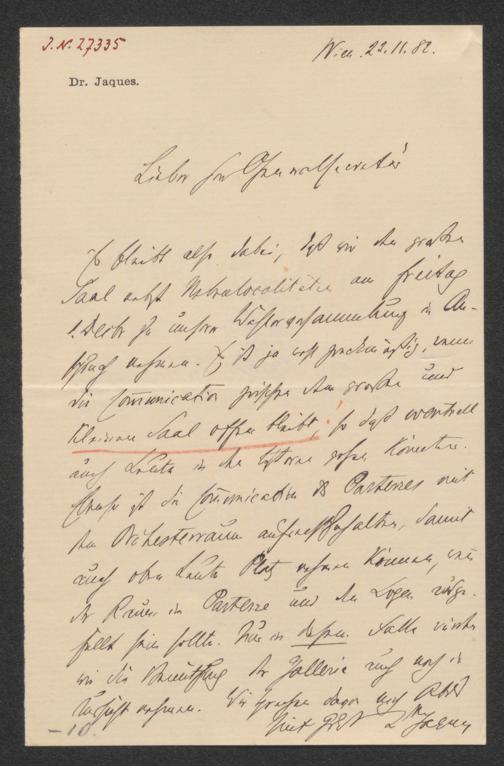 J.N. 27335
Wien. 22.11.82.
Dr. Jaques.
Lieber Herr Generalsecretär
Es bleibt also dabei, daß wir den großen
Saal nebst Nebenlocalitäten am Freitag
1. Decbr zu unserer Wählerversammlung in An-
spruch nehmen. Es ist ja wohl zweckmäßig, wenn
die Communication zwischen dem großen und
kleinen Saal offen bleibt, so daß eventuell
auch Leute in den letzteren gehen könnten.
Ebenso ist die Communication des Parterres mit
dem Orchesterraum aufrechtzuhalten, damit
auch oben Leute Platz nehmen können, wenn
der Raum im Parterre und den Logen ange-
füllt sein sollte. Nur in diesem Falle würden
wir die Benützung der Gallerie auch noch in
Aussicht nehmen. Wir
Mit Gruß Dr Jaques
-10.